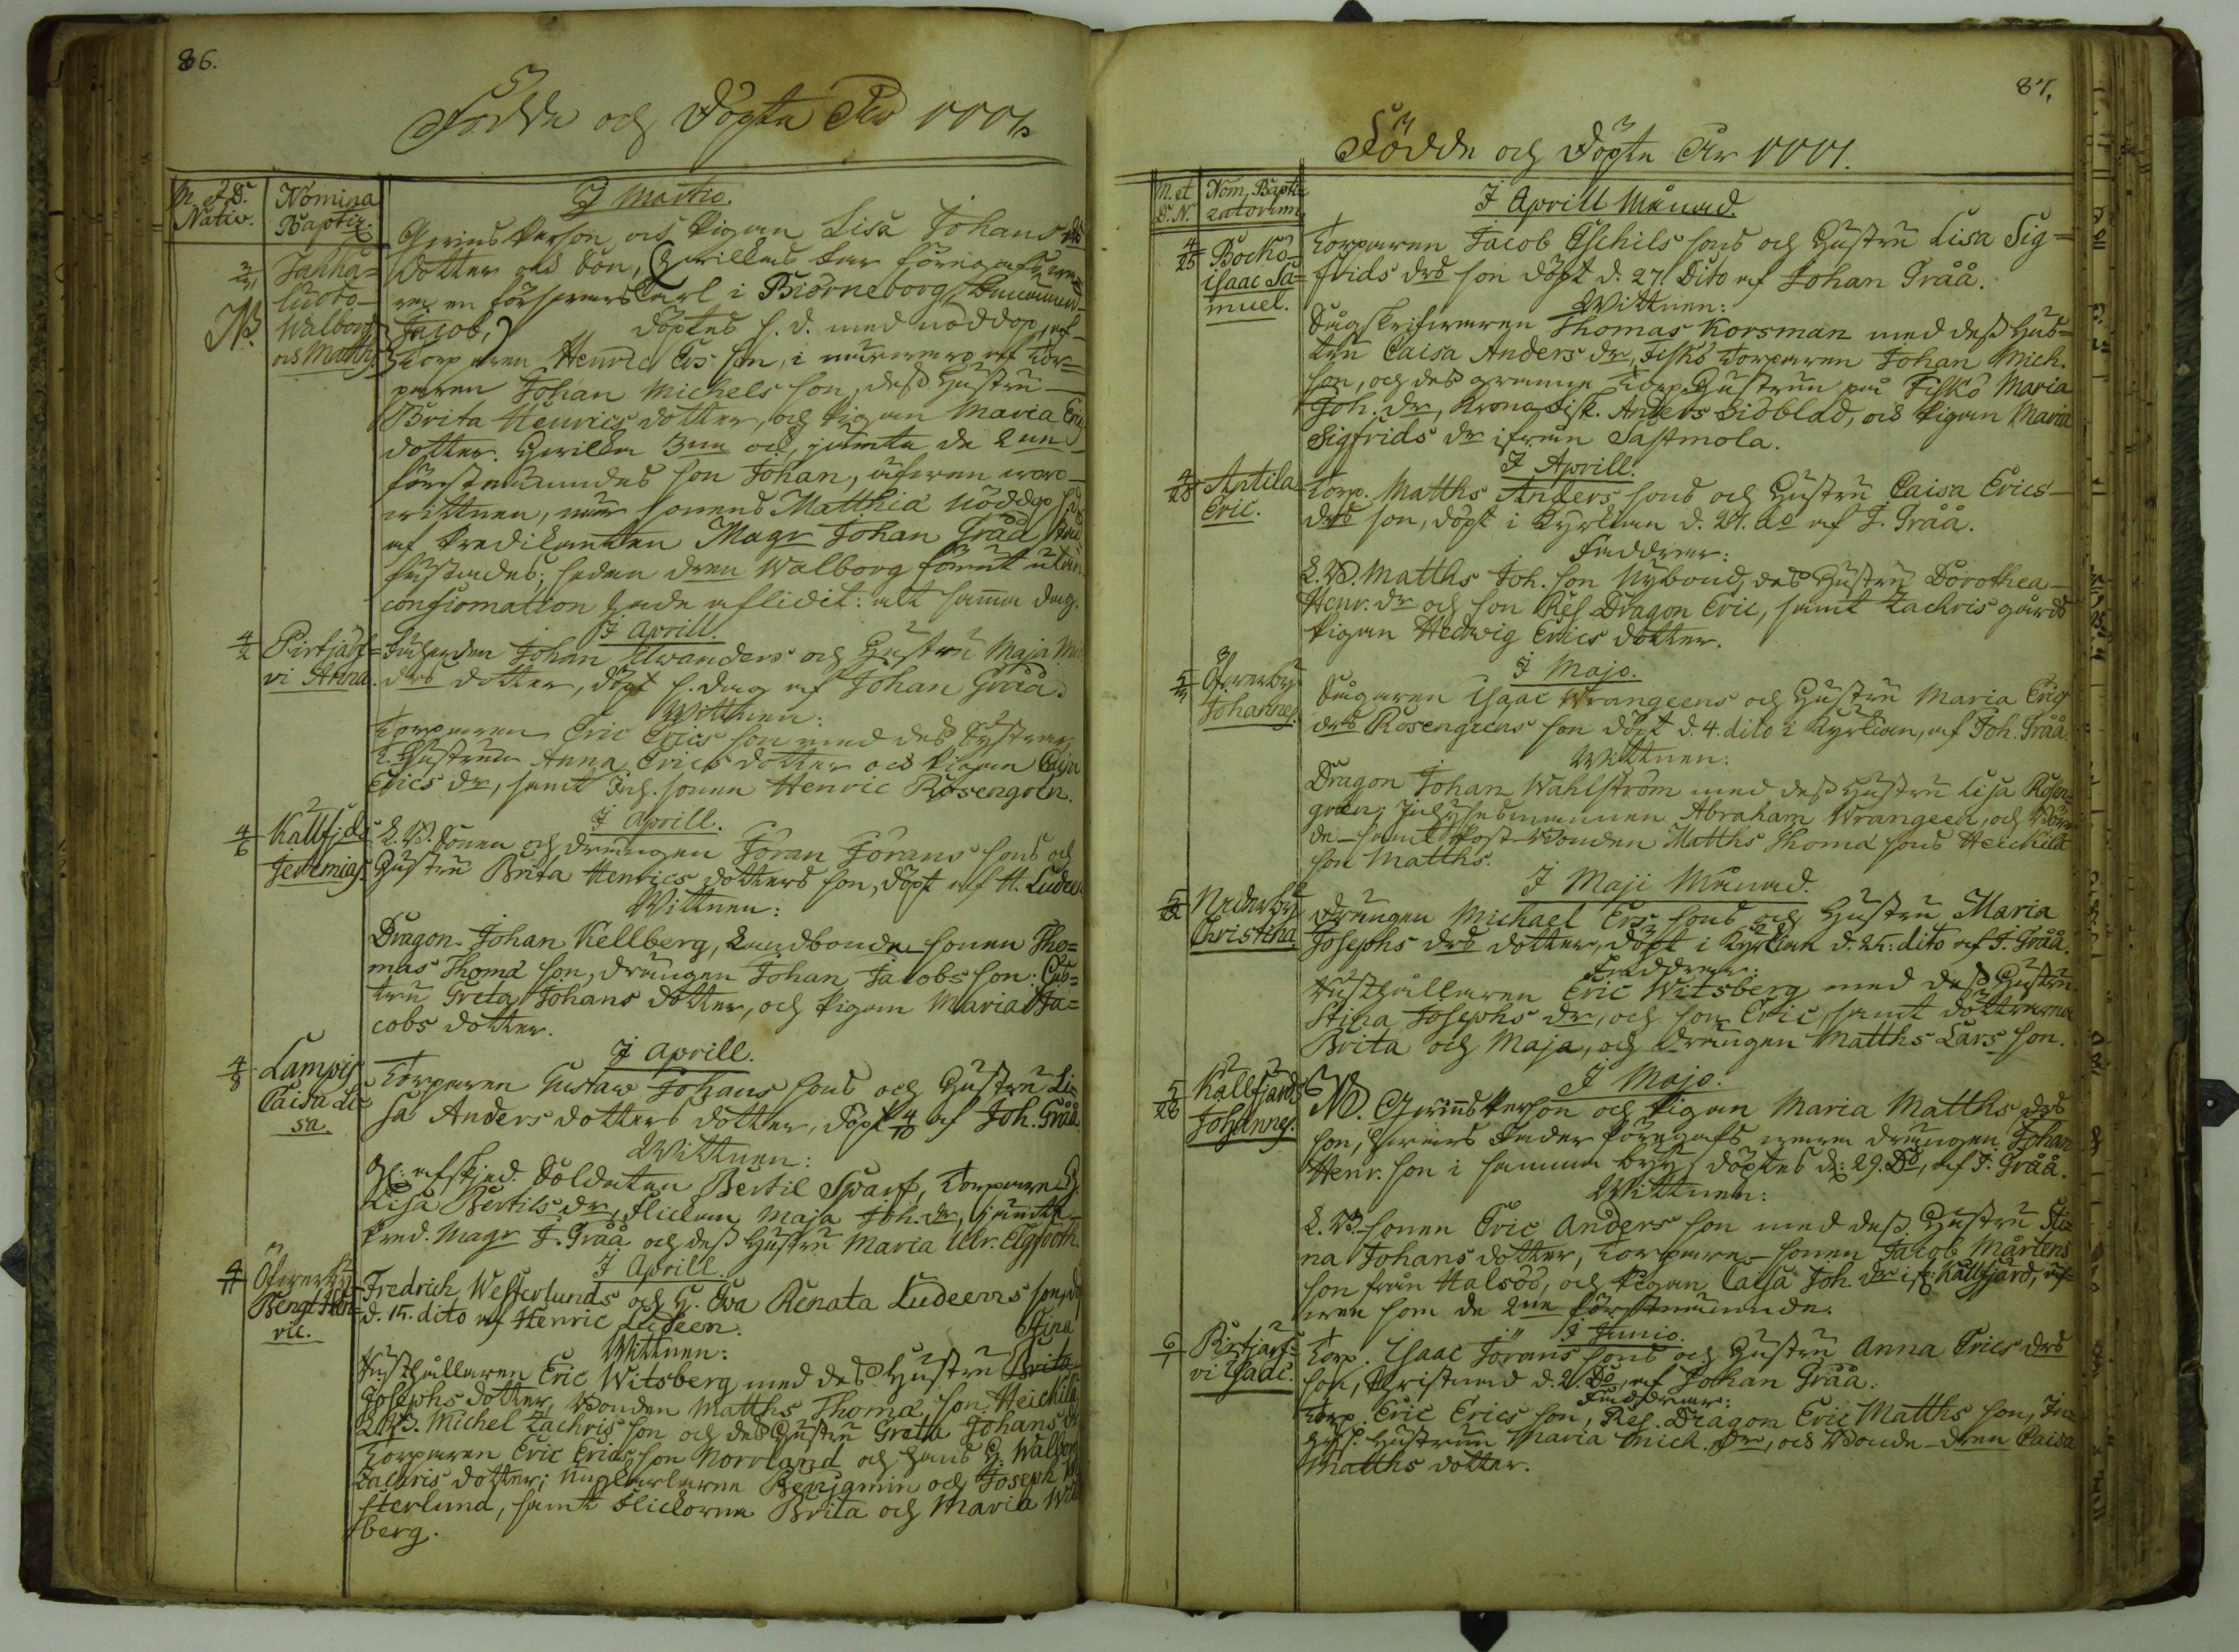 86.
Födde och Döpte År 1777.
M. et D. Nativ.
Nomina Baptiz.
I Martio.
Qvinsperson och Pigan Lisa Johans
dotter och Son, Hvilkas far föregafs wa=
ra en försvarskarl i Biörneborg, benämnd
Jacob, döptes s. d. med nöddop, af
Torparen Henric Ers son, i närwaro af Tor=
paren Johan Michels son, dess Hustru
Brita Henrics dotter, och Pigan Maria Erics
dotter. Hvilka 3ne och, jämte de 2ne
förstnämndes son Johan, äfwen woro
wittnen, när sonens Matthiæ nöddop
af Predikanten Magr Johan Gråå
fastades; sedan dren Walborg förut utan
confirmation hade aflidit: alt samma dag.
NB.
Walborg
och Matths
I Aprill.
4/2 Pirtjärf=
vi Anna.
Johan Alwanders och Hustru Maja
drs dotter, döpt s. dag af Johan Gråå.
Wittnen:
Torparen Eric Erics son med des
Hustrun Anna Erics dotter och Pigan Caisa
Erics dr, samt Inh. sonen Henric Rosengren.
I Aprill.
4/6 Kallfjd
Jeremias.
L. B. Sonen och drängen Jöran Jörans sons och
Hustru Brita Henrics dotters son, döpt af H. Ludeen
Wittnen:
Dragon Johan Kellberg, Landbonde sonen Tho=
mas Thomæ son, drängen Johan Jacobs son: Hus=
tru Greta Johans dotter, och Pigan Maria Ja=
cobs dotter.
I Aprill.
4/8 Lampis
Caisa Li=
sa.
Torparen Gustaw Johans sons och Hustru Li=
sa Anders dotters dotter, döpt 4/10 af Joh. Gråå
Wittnen:
afskjed. Soldaten Bertil Swarf, Torpare H.
Lisa Bertils dr, flickan Maja Joh. dr, jämte
Pred. Magr J. Gråå och dess Hustru Maria Ulr. Elgfooth.
I Aprill.
4/11 Öfwerby
Bengt Hen=
ric.
Fredrich Westerlunds och H. Eva Renata Ludeens son, döpt
d. 15. dito af Henric Ludeen.
Wittnen:
Rusthållaren Eric Witsberg med des Hustru Stina
Josephs dotter, Bonden Matths Thomæ son Heickilä
L. B. Michel Zachris son och des Hustru Gretha Johans
Torparen Eric Erics son Norrland och hans H. Walborg
Zachris dotter; Ungkarlarne Benjamin och Joseph We=
sterlund, samt flickorna Brita och Maria Wits=
berg.
87.
Födde och Döpte År 1777.
M. et D. N.
Nom. Bapti=
zatorum.
I Aprill Månad.
4/25 Bockö
Isaac Sa=
muel.
Torparen Jacob Eschils sons och Hustru Lisa Sig=
frids drs son döpt d. 27. Dito af Johan Gråå.
Wittnen:
Sågskrifwaren Thomas Korsman med dess Hus=
tru Caisa Anders dr, Fiskö Torparen Johan Mich.
son, och des granne Torp. Hustrun på Fiskö Maria
Joh. dr, Krono Fisk. Anders Sidblad, och Pigan Maria
Sigfrids dr ifrån Sastmola.
I Aprill.
4/25 Antila
Eric.
Torp. Matths Anders sons och Hustru Caisa Erics
drs son, döpt i Kyrkian d. 27. do af J. Gråå.
Faddrar:
L. B. Matths Joh. son Nybond, des Hustru Dorothea
Henr. dr och son Res. Dragon Eric, samt Zachris gårds
Pigan Hedwig Erics dotter.
I Majo.
Öfwerby
Johannes.
Sågaren Isaac Wrangeens och Hustru Maria Erics
drs Rosengrens son döpt d. 4. dito i Kyrkian, af Joh. Gråå.
Wittnen:
Dragon Johan Wahlström med dess Hustru Lisa Rosen=
gren; Inhyses mannen Abraham Wrangeen, och
samt Post-Bonden Matths Thomæ sons Heickilä
son Matths.
I Maji Månad.
Nederby
Christina
Drängen Michael Ers sons och Hustru Maria
Josephs drs dotter, döpt i Kyrkian d. 25. dito af J. Gråå.
Faddrar:
Rusthållaren Eric Witsberg med dess Hustru
Stina Josephs dr, och son Eric, samt döttrarna
Brita och Maja, och Drängen Matths Lars son.
I Majo.
5/28 Kallfjärd
Johannes.
NB. Qwinsperson och Pigan Maria Matths drs
son, hwars Fader föregafs wara drängen Johan
Henr. son i samma by, döptes d. 29. Do, af J. Gråå.
Wittnen:
L. B. sonen Eric Anders son med dess Hustru Sti=
na Johans dotter, Torpare-sonen Jacob Mårtens
son från Halsöö, och Pigan Caisa Joh. dr ifr. Kallfjärd, äf=
wen som de 2ne förstnämnde.
I Junio.
6/1 Pirtjärf=
vi Isaac.
Torp. Isaac Jörans sons och Hustru Anna Erics drs
son, Christnad d. 2. Do, af Johan Gråå.
Faddrar:
Torp. Eric Erics son, Res. Dragon Eric Matths son, In=
hys. Hustrun Maria Mich. dr, och Bonde-dren Caisa
Matths dotter.